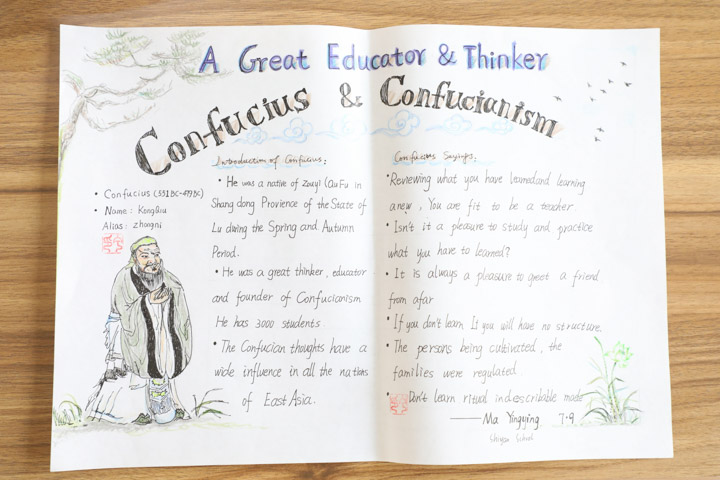 A Great Educator & Thinker
Confucius & Confucianism
• Confucius (551BC-479BC)
• Name: KongQiu
Alias: Zhongni
Introduction of Confucius:
• He was a native of Zouyi (QuFu in
Shang dong Provience of the State of
Lu during the Spring and Autumn
Period.
• He was a great thinker, educator
and founder of Confucianism
He has 3000 students.
• The Confucian thoughts have a
wide influence in all the nations
of East Asia.
Confucius Sayings:
• Reviewing what you have learned and learning
anew, You are fit to be a teacher
• Isn't it a pleasure to study and practice
what you have to learned?
• It is always a pleasure to greet a friend
from afar
• If you don't learn It you will have no structure.
• The persons being cultivated, the
families were regulated
• Don't learn ritual indescribable made
—— Ma Yingying 7.9